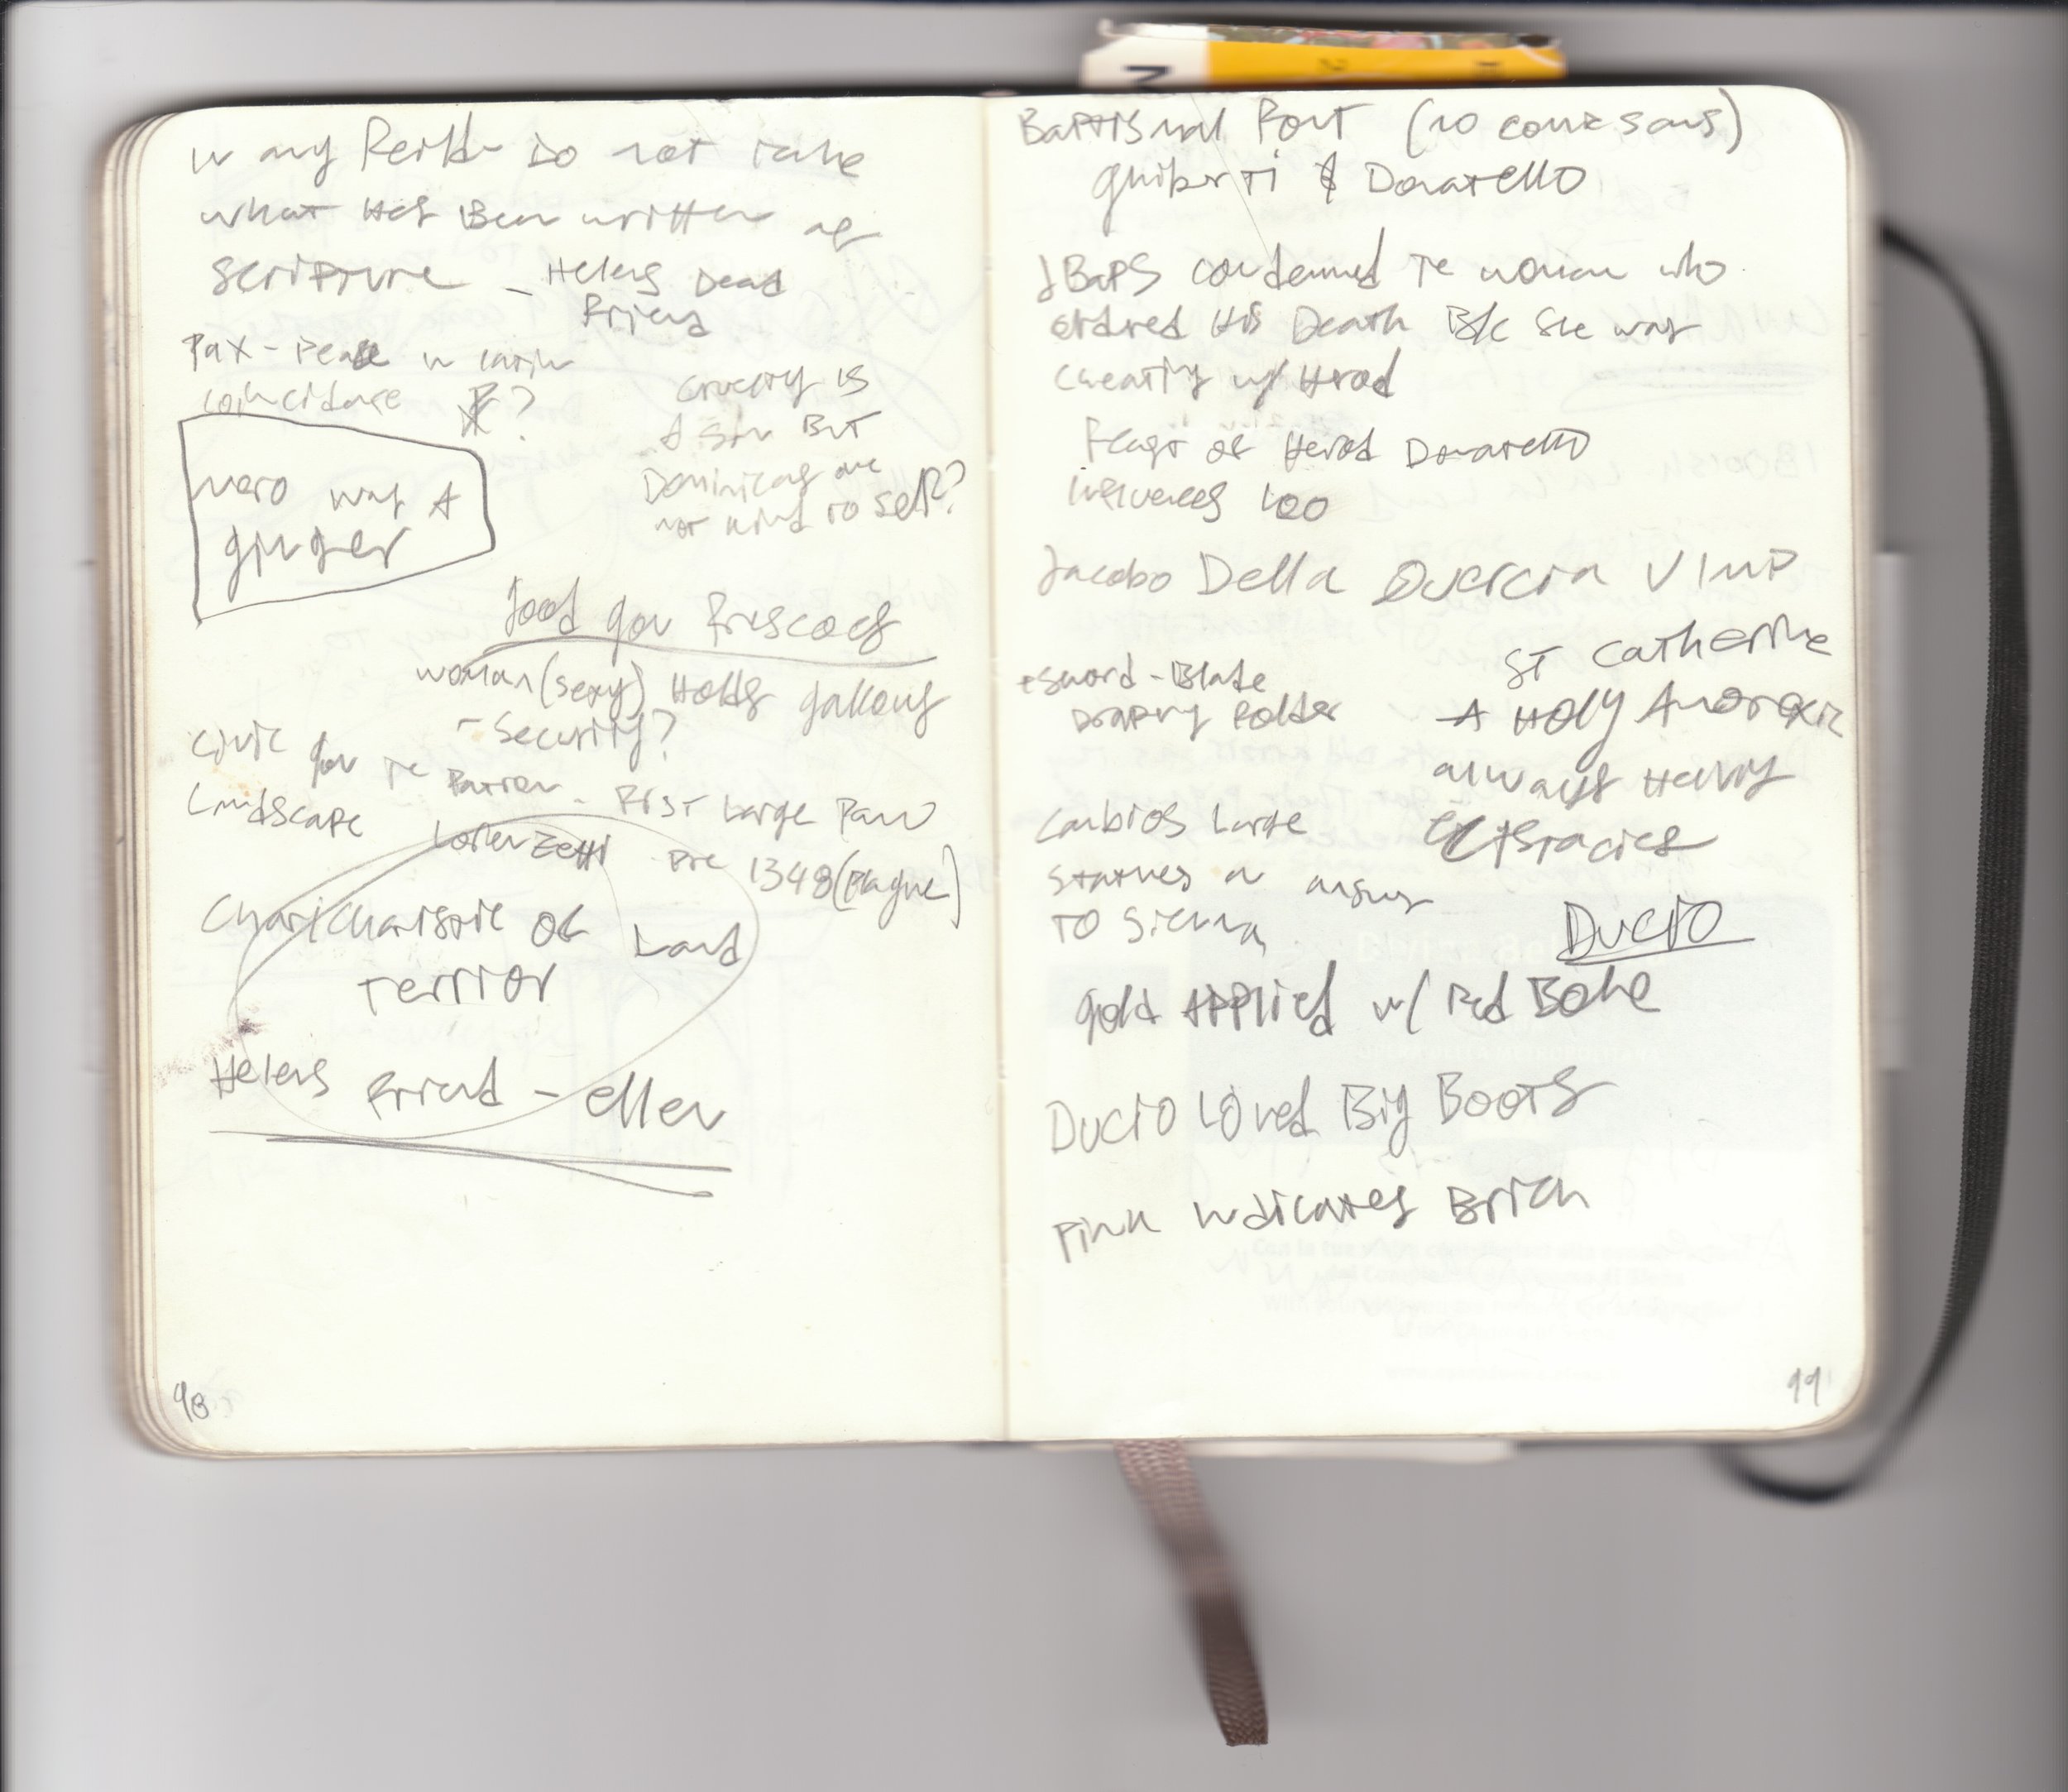 In any            Do not take
what Has Been written as
scripture - Helens Dead
Friend
Pax - Peace in Latin
coincidance ?
cruelty is
a sin But
Dominicas are
not kind to self?
nero was A
ginger
good gov Frescoes
woman (sexy) Holds gallows
- Security?
civic gov Te Patron - First Large Pano
Landscape Lorenzetti Pre 1348 (Plague)
Charicharistic of Land
Terrior
Helens friend - ellen
98
Baptismal Font (no
Ghiberti & Donatello
J Baps condemned Te woman who
ordred His Death B/c She was
cheating w/ Herod
Feast of Herod Donatello
influences Leo
Jacobo Della Quercia VIMP
sword-Blade
Drapery Folder
St Catherine
A Holy Anorexic
always Having
Exstacies
Large
statues in answr
To Sienna
Ducio
gold Applied w/ Red Bole
Ducio Loved Big Boots
Pink indicates Brick
99